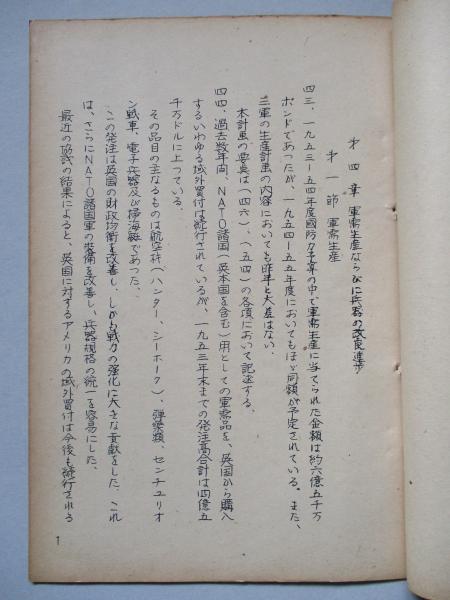 第四章 軍需生産ならびに兵器の改良進歩
第一節 軍需生産
四三、一九五三―五四年度国防力予算の中で軍需生産に当てられた金額は約六億五千万
ポンドであったが、一九五四―五五年度においてもほぼ同額が予定されている。また、
三軍の生産計画の内容においても昨年と大差はない。
本計画の要点は(四六)、(五四)の各項において記述する。
四四、過去数年間、NATO諸国(英本国を含む)用としての軍需品を、英国から購入
するいわゆる域外買付は続行されているが、一九五三年末までの発注高合計は四億五
千万ドルに上っている。
その品目の主なるものは航空機(ハンター、シーホーク)、弾薬類、センチュリオ
ン戦車、電子兵器及び掃海艇であった。
この発注は英国の財政均衡を改善し、しかも戦力の強化に大きな貢献をした。これ
は、さらにNATO諸国軍の装備を改善し、兵器規格の統一を容易にした。
最近の協議の結果によると、英国に対するアメリカの域外買付は今後も続行される
1